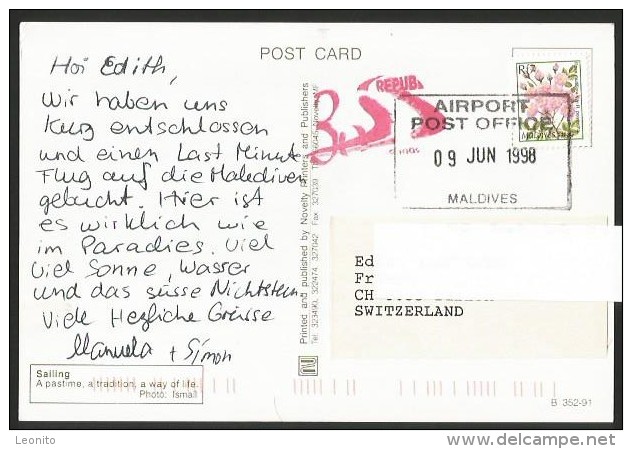 POST CARD
Hoi Edith,
Wir haben uns
kurz entschlossen
und einen Last Minute
Flug auf die Malediven
gebucht. Hier ist
es wirklich wie
im Paradies. Viel
Viel Sonne, Wasser
und das süsse Nichtstun
Viele Herzliche Grüsse
Manuela + Simon
Sailing
A pastime, a tradition, a way of life.
Photo: Ismail
Printed and published by Novelty Printers and Publishers
Tel: 323490, 322474 327042 Fax 327039
REPUB
AIRPORT
POST OFFICE
09 JUN 1998
MALDIVES
R/2
MALDIVES
Ed
Fr
CH
SWITZERLAND
B 352-91
Leonito
www.delcampe.net